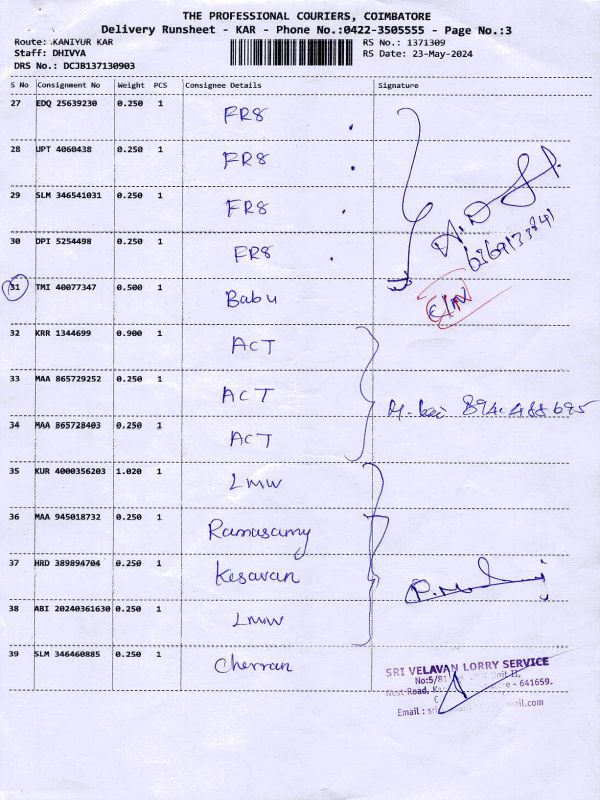 THE PROFESSIONAL COURIERS, COIMBATORE
Delivery Runsheet - KAR - Phone No.:0422-3505555 - Page No.:3
Route: KANIYUR KAR RS No.: 1371309
Staff: DHIVYA RS Date: 23-May-2024
DRS No.: DCJB137130903
S No Consignment No Weight PCS Consignee Details Signature
27 EDQ 25639230 0.250 1 FR8
28 UPT 4060438 0.250 1 FR8
29 SLM 346541031 0.250 1 FR8
30 DPI 5254498 0.250 1 FR8
6369133841
31 TMI 40077347 0.500 1 Babu
32 KRR 1344699 0.900 1 ACT
33 MAA 865729252 0.250 1 ACT
34 MAA 865728403 0.250 1 ACT
35 KUR 4000356203 1.020 1 LMW
36 MAA 945018732 0.250 1 Ramasamy
37 HRD 389894704 0.250 1 Kesavan
38 ABI 20240361630 0.250 1 LMW
39 SLM 346460885 0.250 1 Cherran
SRI VELAVAN LORRY SERVICE
No:5/81 Unit II,
West Road, - 641659.
Email :